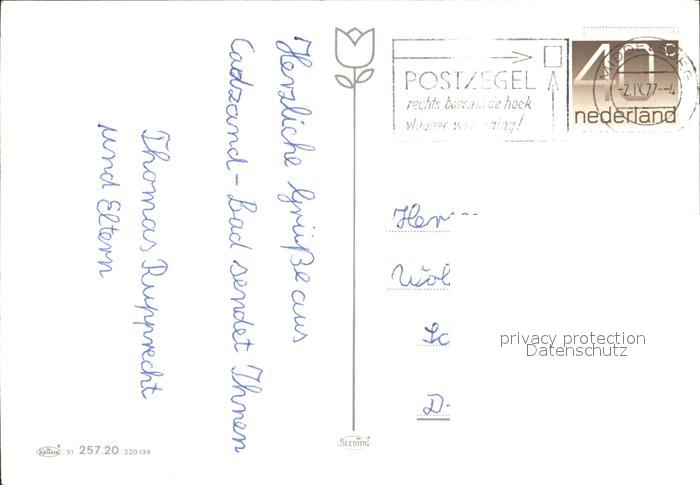 Herzliche Grüße aus
Cadzand-Bad sendet Ihnen
Thomas Rupprecht
und Eltern
POSTZEGEL
rechts bovenin de hoek
vlugger
40 c
nederland
-2.IX.77--4
Her
Wol
Sc
D-
privacy protection
Datenschutz
SLEDING
51. 257.20 220139